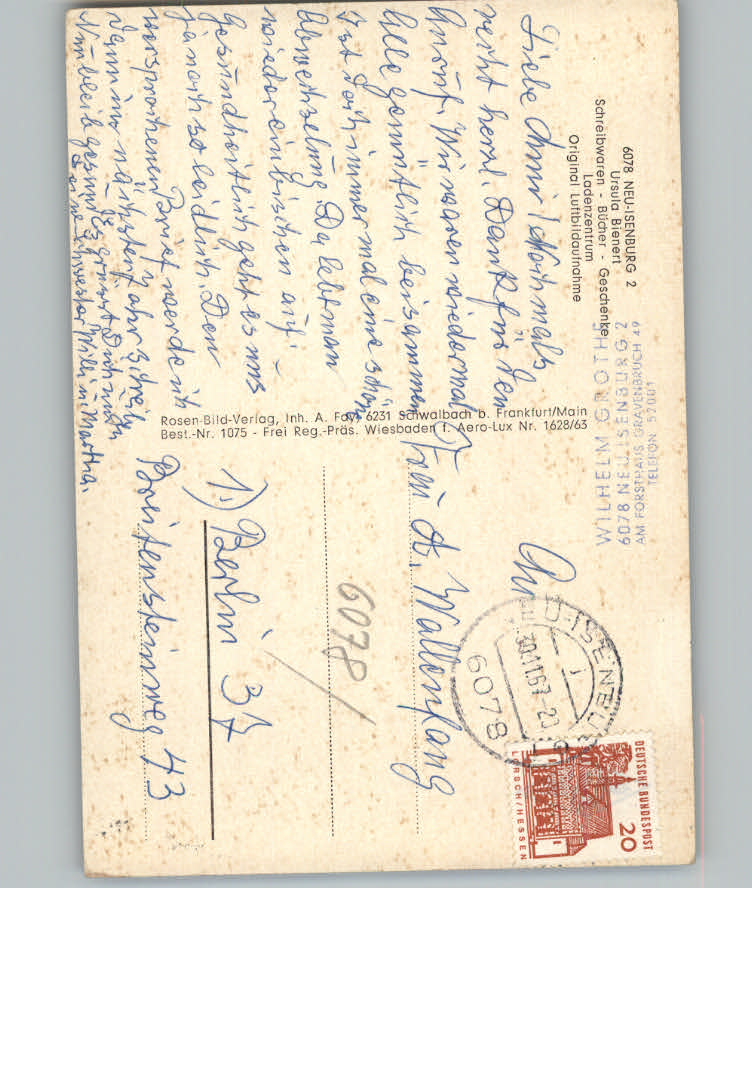 6078 NEU-ISENBURG 2
Ursula Bienert
Schreibwaren - Bücher - Geschenke
Ladenzentrum
Original Luftbildaufnahme
WILHELM GROTHE
6078 NEU ISENBURG 2
AM FORSTHAUS GRAVENBRUCH 49
TELEFON 52001
Liebe Änni! Nochmals
recht herzl. Dank für den
Anruf. Wir waren wiedermal
alle gemütlich beisammen
ist doch immer mal eine schöne
Abwechselung. Da lebt man
wieder ein bischen auf.
Gesundheitlich geht es uns
ja noch so leidlich. Den
versprochenen Brief werde ich
dann im nächsten Jahr schreib.
Nun bleib gesund. Es grüsst Dich
Deine Schwester Willi u. Martha.
Rosen-Bild-Verlag, Inh. A. Fay, 6231 Schwalbach b. Frankfurt/Main
Best.-Nr. 1075 - Frei Reg.-Präs. Wiesbaden f. Aero-Lux Nr. 1628/63
NEU-ISENBURG
30.11.67-20
6078
DEUTSCHE BUNDESPOST
20
LORSCH/HESSEN
Frau A. Wallenfang
6078
1.) Berlin 37
Breitensteinweg 43